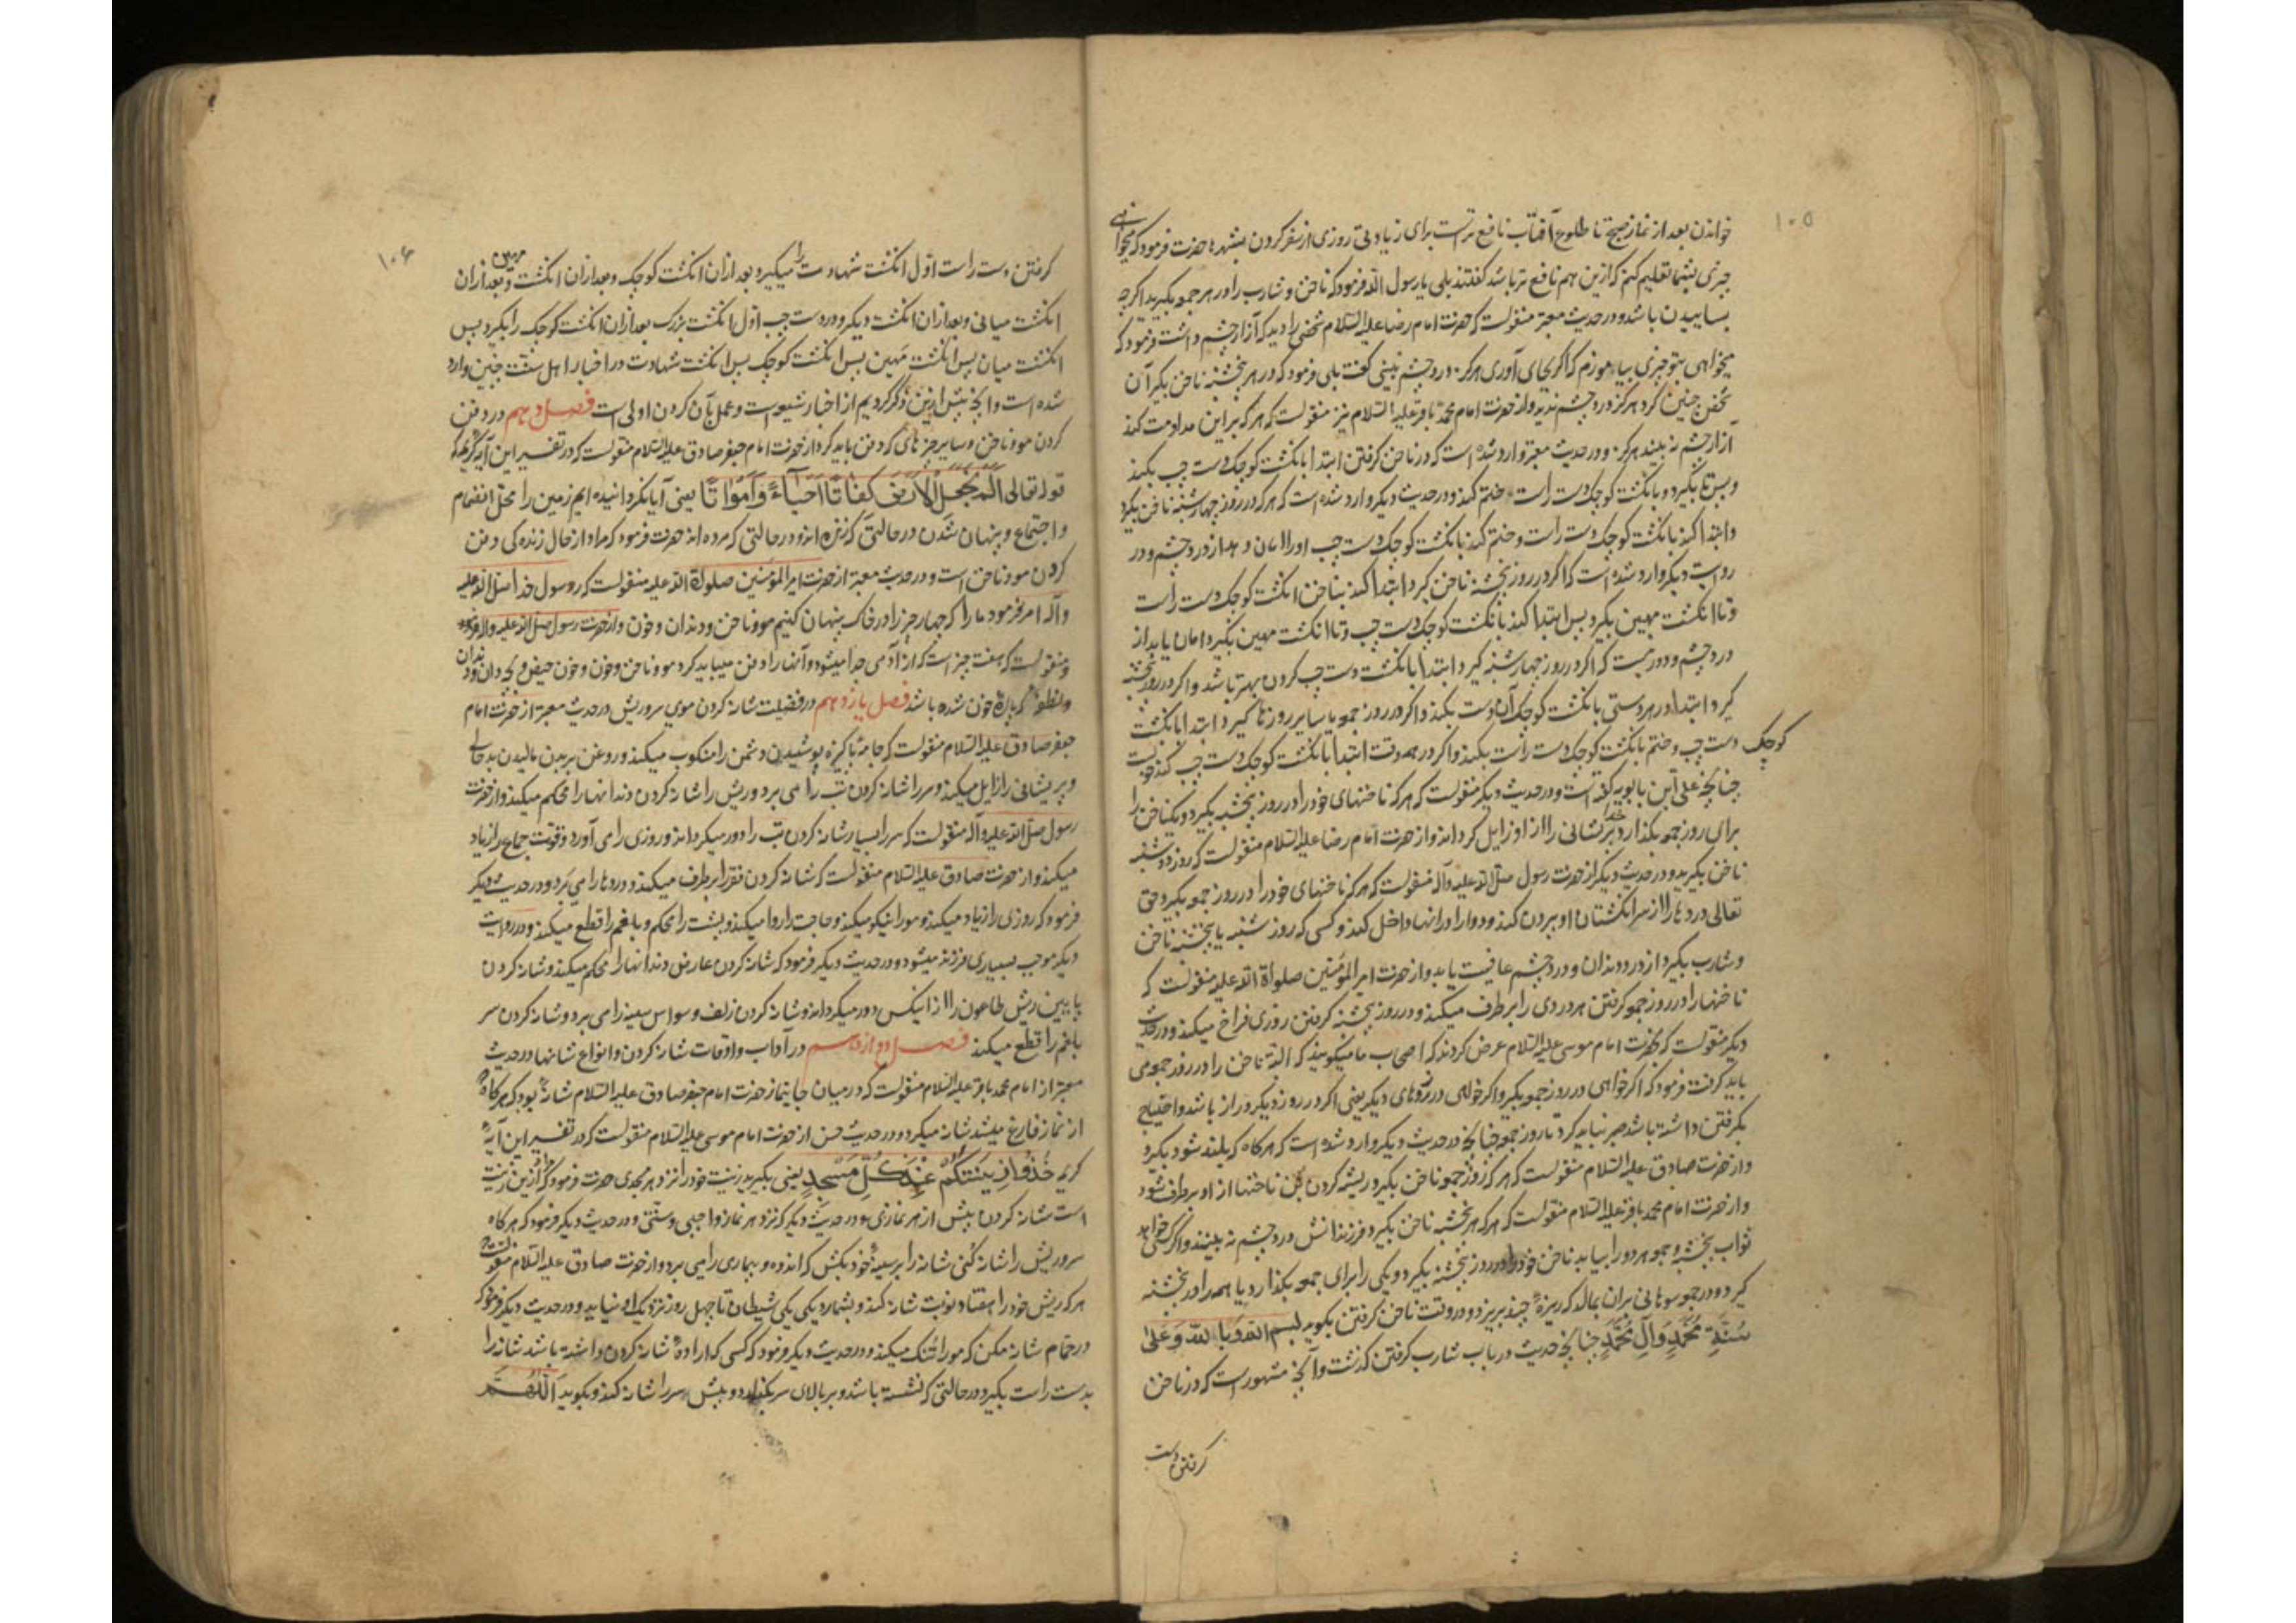 ۱۰۵
خواندن بعد از نماز صبح تا طلوع آفتاب نافع ترست برای زیادتی روزی از سفر کردن بشهرها حضرت فرمود که میخواهی
چیزی بشما تعلیم کنم که ازین هم نافع تر باشد گفتند بلی یا رسول الله فرمود که ناخن و شارب را در هر جمعه بگیرید اگرچه
بساییدن باشد و در حدیث معتبر منقولست که حضرت امام رضا علیه السلام شخصی را دید که آزار چشم داشت فرمود که
میخواهی بتو چیزی بیاموزم که اگر بجای آوری هرگز درد چشم نبینی گفت بلی فرمود که در هر پنجشنبه ناخن بگیر آن
شخص چنین کرد هرگز درد چشم ندید و از حضرت امام محمد باقر علیه السلام نیز منقولست که هر که بر این مداومت کند
آزار چشم نه بیند هرگز و در حدیث معتبر وارد شده است که در ناخن گرفتن ابتدا بانگشت کوچک دست چپ بکند
و پس تا بگیرد و بانگشت کوچک دست راست ختم کند و در حدیث دیگر وارد شده است که هر که در روز چهارشنبه ناخن بگیرد
و ابتدا کند بانگشت کوچک دست راست و ختم کند بانگشت کوچک دست چپ او را امان دهد از درد چشم و در
روایت دیگر وارد شده است که اگر در روز پنجشنبه ناخن گیرد ابتدا کند بناخن انگشت کوچک دست راست
و تا انگشت مهین بگیرد پس ابتدا کند بانگشت کوچک دست چپ و تا انگشت مهین بگیرد امان یابد از
درد چشم و دور نیست که اگر در روز چهارشنبه گیرد ابتدا بانگشت دست چپ کردن بهتر باشد و اگر در روز پنجشنبه
گیرد ابتدا در هر دستی بانگشت کوچک آن دست بکند و اگر در روز جمعه یا سایر روزها گیرد ابتدا بانگشت
کوچک دست چپ و ختم بانگشت کوچک دست راست بکند و اگر در همه وقت ابتدا بانگشت کوچک دست چپ کند خوبست
چنانچه علی ابن بابویه گفته است و در حدیث دیگر منقولست که هر که ناخنهای خود را در روز پنجشنبه بگیرد و یک ناخن را
برای روز جمعه بگذارد خدا پریشانی را از او زایل گرداند و از حضرت امام رضا علیه السلام منقولست که روز دوشنبه
ناخن بگیرید و در حدیث دیگر از حضرت رسول صلی الله علیه و آله منقولست که هر که ناخنهای خود را در روز جمعه بگیرد حق
تعالی دردها را از سر انگشتان او بیرون کند و دوا را در آنها داخل کند و کسی که روز شنبه یا پنجشنبه ناخن
و شارب بگیرد از درد دندان و درد چشم عافیت یابد و از حضرت امیر المؤمنین صلوات الله علیه منقولست که
ناخنها را در روز جمعه گرفتن هر دردی را برطرف میکند و در روز پنجشنبه گرفتن روزی فراخ میکند و در حدیث
دیگر منقولست که بحضرت امام موسی علیه السلام عرض کردند که اصحاب ما میگویند که البته ناخن را در روز جمعه می
باید گرفت فرمود که اگر خواهی در روز جمعه بگیر و اگر خواهی در روزهای دیگر یعنی اگر در روز دیگر دراز باشد و احتیاج
بگرفتن داشته باشد صبر نباید کرد تا روز جمعه چنانچه در حدیث دیگر وارد شده است که هرگاه که بلند شود بگیرد
و از حضرت صادق علیه السلام منقولست که هر که روز جمعه ناخن بگیرد ریشه کردن بُن ناخنها از او برطرف شود
و از حضرت امام محمد باقر علیه السلام منقولست که هر که هر پنجشنبه ناخن بگیرد فرزندانش درد چشم نه بینند و اگر کسی خواهد
ثواب پنجشنبه و جمعه هر دو را بیابد ناخن خود را در روز پنجشنبه بگیرد و یکی را برای جمعه بگذارد یا همه را در پنجشنبه
گیرد و در جمعه سوهانی بران بمالد که ریزهٔ چند بریزد و در وقت ناخن گرفتن بگوید بسم الله و بالله و علی
سُنَّةِ مُحَمَّدٍ وَآلِ مُحَمَّدٍ چنانچه حدیث در باب شارب گرفتن گذشت و آنچه مشهور است که در ناخن
گرفتن دست
۱۰۶
گرفتن دست راست اول انگشت شهادت را میگیرد بعد از آن انگشت کوچک و بعد از آن انگشت مهین و بعد از آن
انگشت میانی و بعد از آن انگشت دیگر و در دست چپ اول انگشت بزرگ بعد از آن انگشت کوچک را بگیرد پس
انگشت میان پس انگشت مهین پس انگشت کوچک پس انگشت شهادت در اخبار اهل سنت چنین وارد
شده است و آنچه پیش ازین ذکر کردیم از اخبار شیعه است و عمل بآن کردن اولی است فصل دهم در دفن
کردن مو و ناخن و سایر چیزهای که دفن باید کرد از حضرت امام جعفر صادق علیه السلام منقولست که در تفسیر این آیه کریمه که
قوله تعالی اَلَمْ نَجْعَلِ الْاَرْضَ كِفَاتًا اَحْيَاءً وَاَمْوَاتًا یعنی آیا نگردانیده ایم زمین را محل انضمام
و اجتماع و پنهان شدن در حالتی که زنده اند و در حالتی که مرده اند حضرت فرمود که مراد از حال زنده گی دفن
کردن مو و ناخن است و در حدیث معتبر از حضرت امیر المؤمنین صلواة الله علیه منقولست که رسول خدا صلی الله علیه
و آله امر فرمود ما را که چهار چیز را در خاک پنهان کنیم مو و ناخن و دندان و خون و از حضرت رسول صلی الله علیه و آله فرمود
منقولست که هفت چیز است که از آدمی جدا میشود و آنها را دفن میباید کرد مو و ناخن و خون و خون حیض و بچه دان و دندان
و نطفهٔ که پارهٔ خون شده باشد فصل یازدهم در فضیلت شانه کردن موی سر و ریش در حدیث معتبر از حضرت امام
جعفر صادق علیه السلام منقولست که جامهٔ پاکیزه پوشیدن دشمن را منکوب میکند و روغن بر بدن مالیدن بدحالی
و پریشانی را زایل میکند و سر را شانه کردن تب را می برد و ریش را شانه کردن دندانها را محکم میکند و از حضرت
رسول صلی الله علیه و آله منقولست که سر را بسیار شانه کردن تب را دور میگرداند و روزی را می آورد و قوّت جماع را زیاد
میکند و از حضرت صادق علیه السلام منقولست که شانه کردن فقر را برطرف میکند و دردها را می برد و در حدیث دیگر
فرمود که روزی را زیاد میکند و مو را نیکو میکند و حاجت را روا میکند و پشت را محکم و بلغم را قطع میکند و در روایت
دیگر موجب بسیاری فرزند میشود و در حدیث دیگر فرمود که شانه کردن عارض دندانها را محکم میکند و شانه کردن
پایین ریش طاعون را از اینکس دور میگرداند و شانه کردن زلف وسواس سینه را می برد و شانه کردن سر
بلغم را قطع میکند فصل دوازدهم در آداب و اوقات شانه کردن و انواع شانها در حدیث
معتبر از امام محمد باقر علیه السلام منقولست که در میان جانماز حضرت امام جعفر صادق علیه السلام شانهٔ بود که هرگاه
از نماز فارغ میشد شانه میکرد و در حدیث حسن از حضرت امام موسی علیه السلام منقولست که در تفسیر این آیهٔ
کریمه خُذُوا زِينَتَكُمْ عِنْدَ كُلِّ مَسْجِدٍ یعنی بگیرید زینت خود را نزد هر مسجدی حضرت فرمود که ازین زینت
است شانه کردن پیش از هر نمازی و در حدیث دیگر که نزد هر نماز واجبی و سنتی و در حدیث دیگر فرمود که هرگاه
سر و ریش را شانه کنی شانه را بر سینهٔ خود بکش که اندوه و بیماری را می برد و از حضرت صادق علیه السلام منقولست
هر که ریش خود را هفتاد نوبت شانه کند و بشمارد یکی یکی شیطان تا چهل روز نزدیک او نیاید و در حدیث دیگر فرمود که
در حمام شانه مکن که مو را تنک میکند و در حدیث دیگر فرمود که کسی که ارادهٔ شانه کردن داشته باشد شانه را
بدست راست بگیرد در حالتی که نشسته باشد و بر بالای سر بگذارد و پیش سر را شانه کند و بگوید اَللّٰهُمَّ